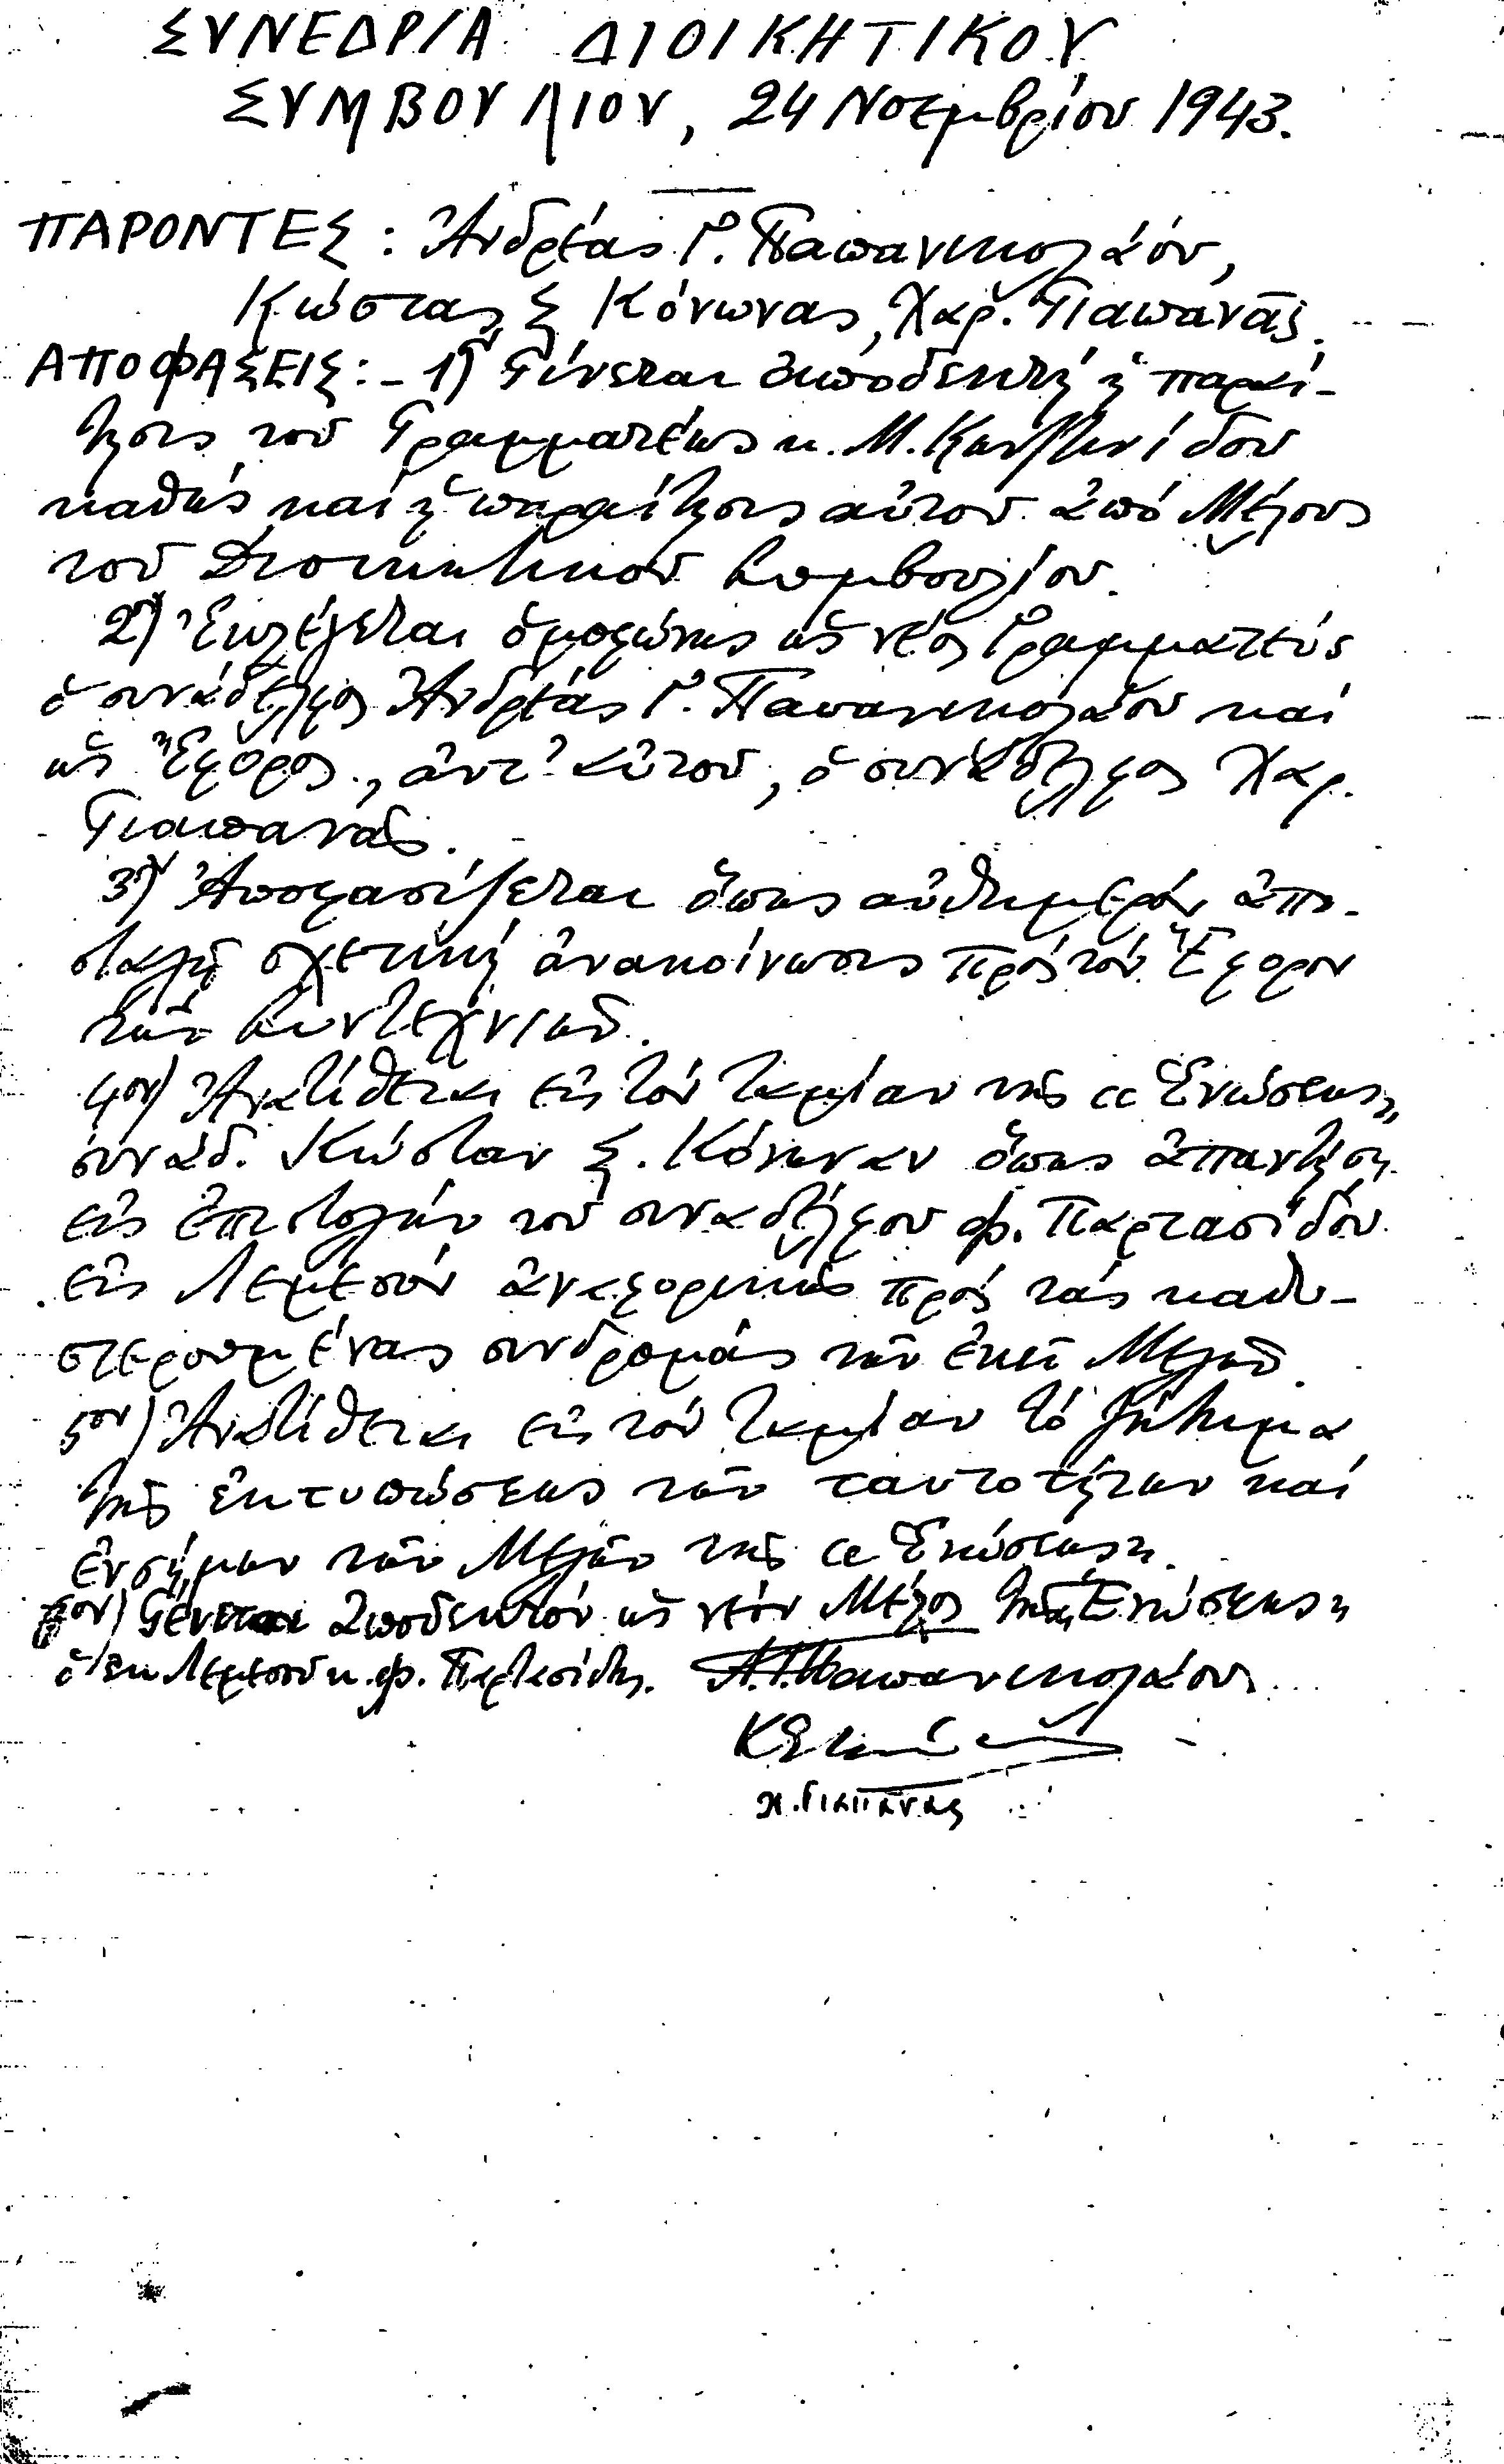 ΣΥΝΕΔΡΙΑ ΔΙΟΙΚΗΤΙΚΟΥ
ΣΥΜΒΟΥΛΙΟΥ, 24 Νοεμβρίου 1943.
ΠΑΡΟΝΤΕΣ: Ἀνδρέας Γ. Παπανικολάου,
Κώστας Σ. Κόνωνας, Χαρ. Γιαπανᾶς.
ΑΠΟΦΑΣΕΙΣ: - 1) Γίνεται ἀποδεκτή ἡ παραί-
τησις τοῦ Γραμματέως κ. Μ.
καθώς καί ἡ παραίτησις αὐτοῦ ἀπό Μέλους
τοῦ Διοικητικοῦ Συμβουλίου.
2ον) Ἐκλέγεται ὁμοφώνως ὡς νέος Γραμματεύς
ὁ συνάδελφος Ἀνδρέας Γ. Παπανικολάου καί
ὡς Ἔφορος, ἀντ' αὐτοῦ, ὁ συνάδελφος Χαρ.
Γιαπανᾶς.
3ον) Ἀποφασίζεται ὅπως αὐθημερόν ἀπο-
σταλῇ σχετική ἀνακοίνωσις πρός τόν Ἔφορον
τῶν Συντεχνιῶν.
4ον) Ἀνατίθεται εἰς τόν Ταμίαν τῆς «Ἑνώσεως»
συνάδ. Κώσταν Σ. Κόνωναν ὅπως ἀπαντήσῃ
εἰς ἐπιστολήν τοῦ συναδέλφου Φ. Παρτασίδου
εἰς Λεμεσόν ἀναφορικῶς πρός τάς καθυ-
στερουμένας συνδρομάς τῶν ἐκεῖ Μελῶν.
5ον) Ἀνατίθεται εἰς τόν Ταμίαν τό ζήτημα
τῆς ἐκτυπώσεως τῶν ταυτοτήτων καί
ἐνσήμων τῶν Μελῶν τῆς «Ἑνώσεως».
6ον) Γίνεται ἀποδεκτόν ὡς νέον Μέλος τῆς «Ἑνώσεως»
ὁ ἐκ Λεμεσοῦ κ. Φ. Παρτασίδης. Α. Γ. Παπανικολάου
Χ. Γιαπανας